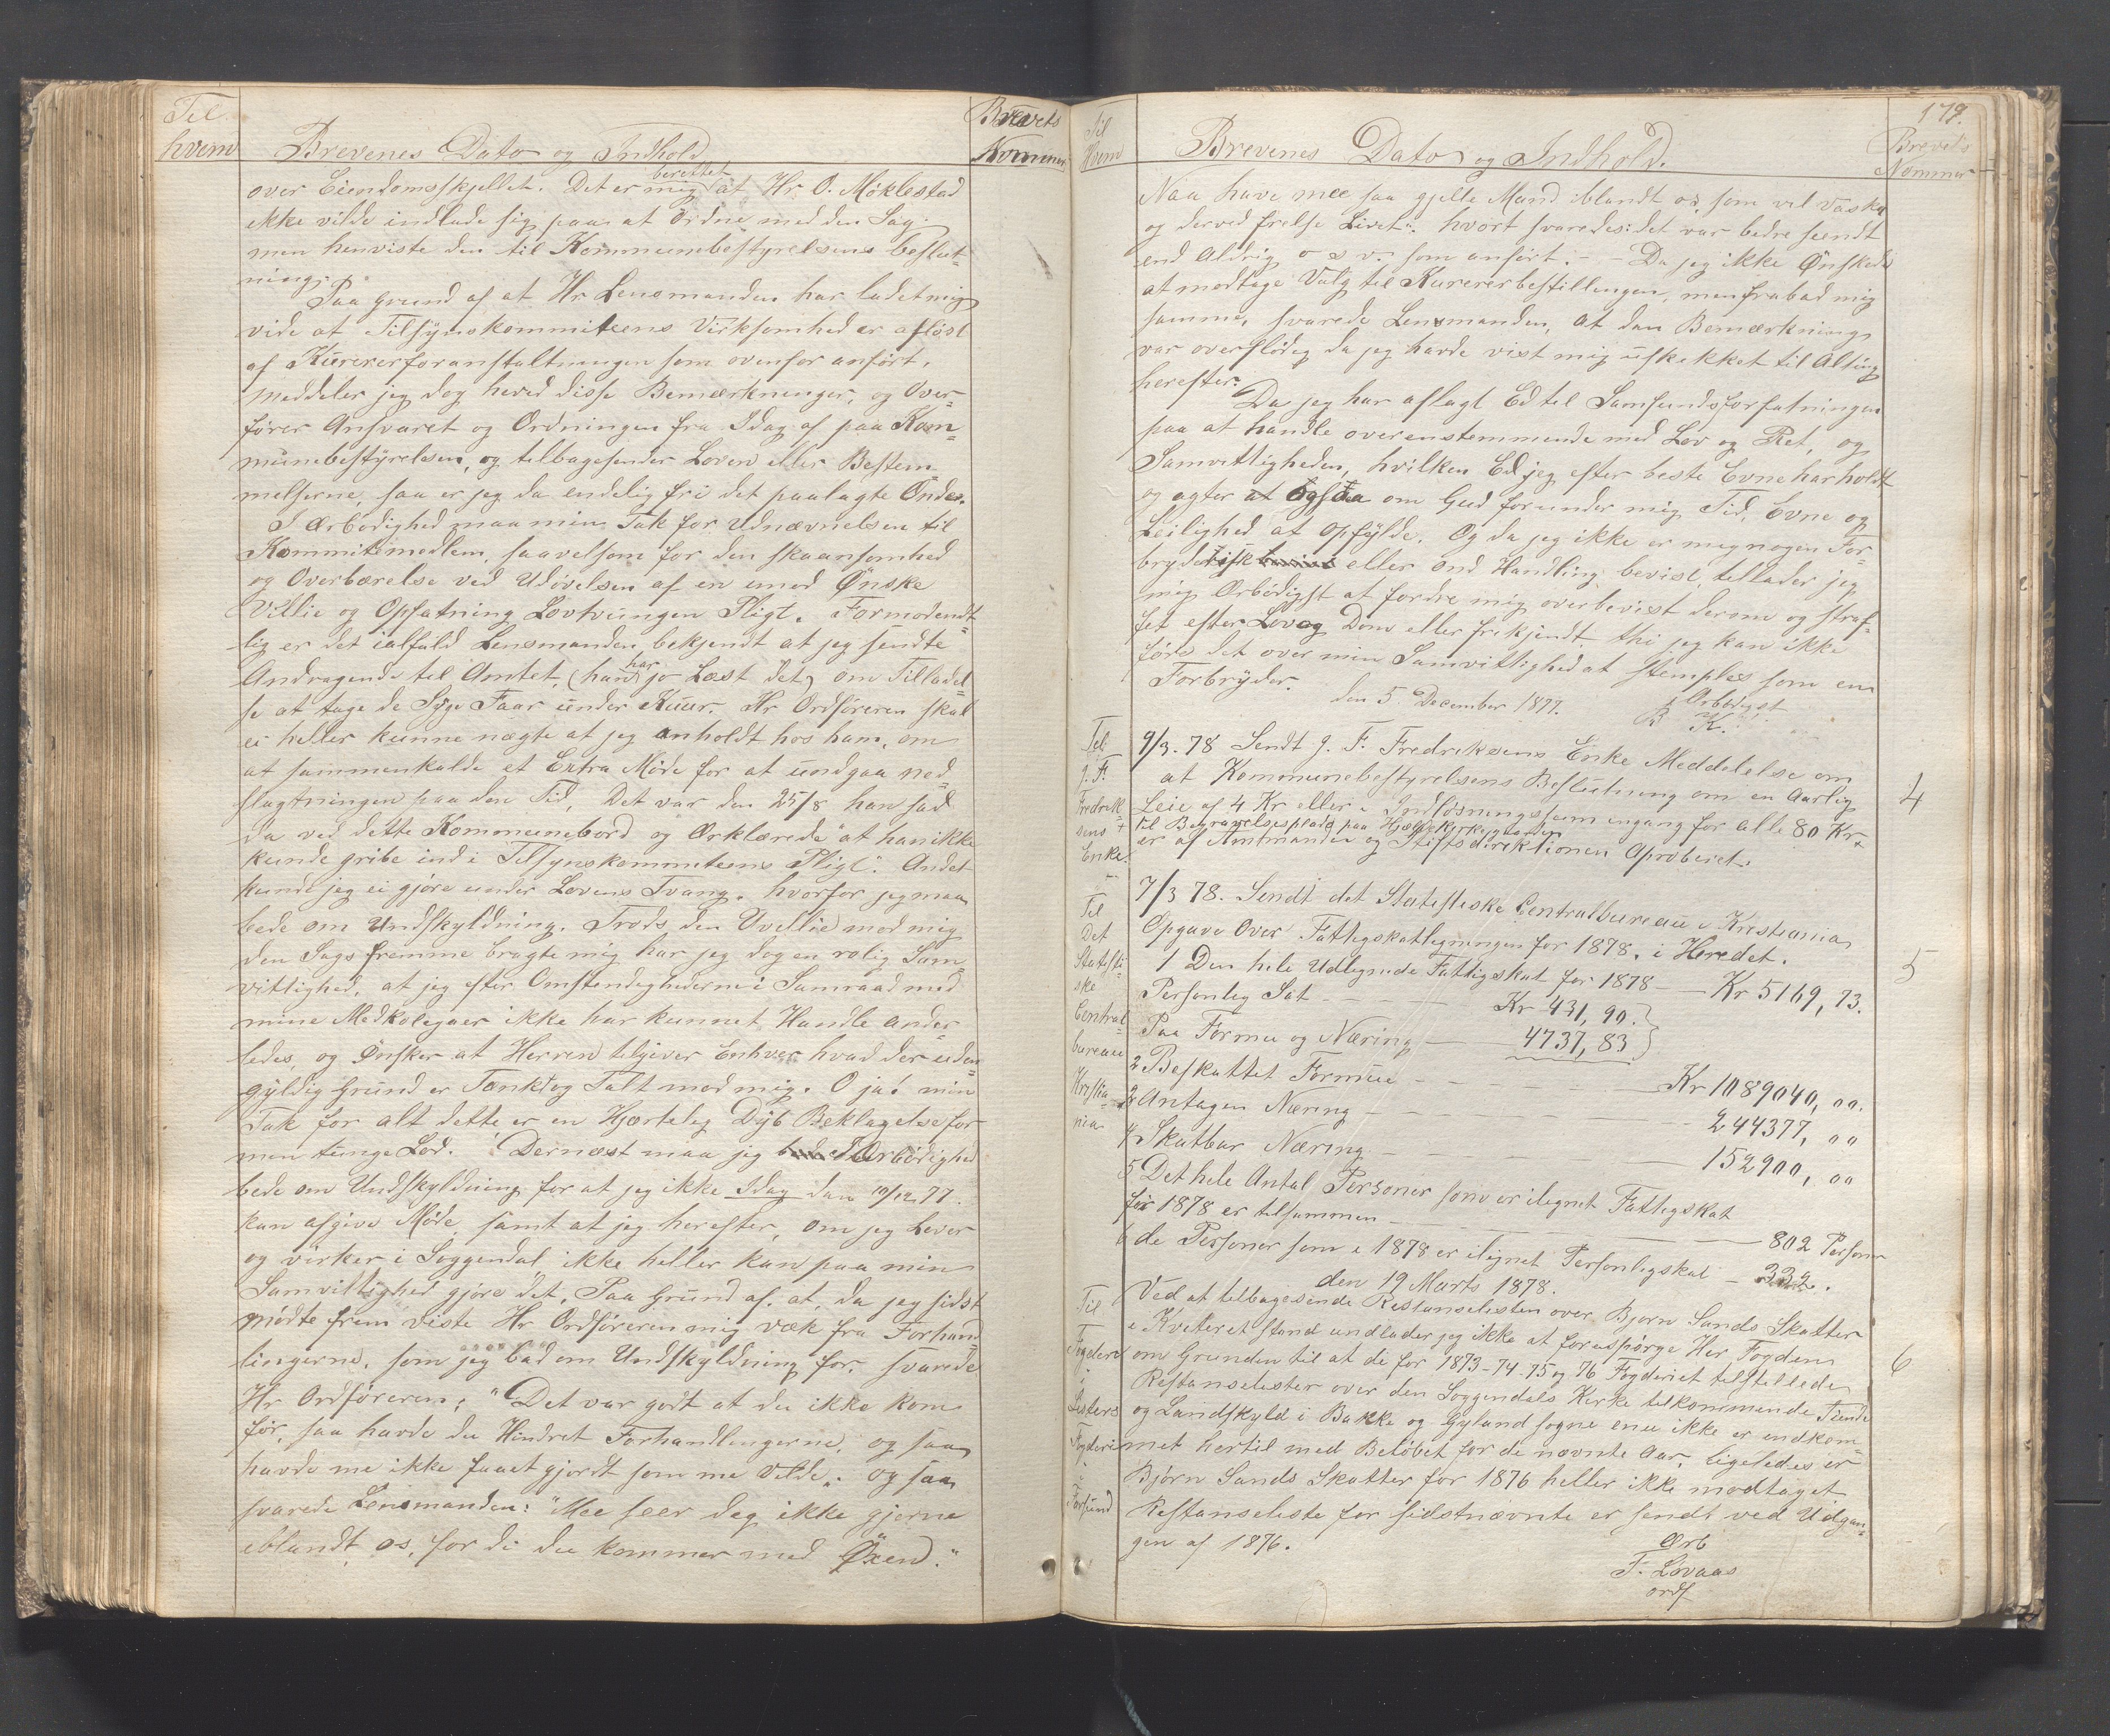 Til
hvem
Brevenes Dato og Indhold
Brevets
Nommer
over Eiendomsskjellet. Det er mig berettet at Hr. O. Möklestad
ikke vilde indlade sig paa at ordne med den Sag
men henviste den til Kommunebestyrelsens Beslut-
ning.
Paa Grund af at Hr Lensmanden har ladet mig
vide at Tilsÿnskommiteens Virksomhed er aflöst
af Kurererforanstaltningen som ovenfor anfört,
meddeler jeg dog herved disse Bemærkninger, og Over-
förer Ansvaret og Ordningen fra Idag af paa Kom-
munebestÿrelsen, og tilbagesender Loven eller Bestem
melserne, saa er jeg da endelig fri det paalagte Onde.
I Ærbödighed maa min Tak for Udnævnelsen til
Kommitemedlem, saavelsom for den skaansomhed
og Overbærelse ved Udövelsen af en imod Önske
Villie og Opfatning Lovtvungen Pligt. Formodent-
lig er det ialfald Lensmanden bekjendt at jeg sendte
Andragende til Amtet, (han har jo Læst det) om Tilladel-
se at tage de Syge Faar under Kuur. Hr Ordföreren skal
ei heller kunne nægte at jeg anholdt hos ham, om
at sammenkalde et Extra Möde for at undgaa ned-
slagtningen paa den Tid, Det var den 25/8 han sad
da ved dette Kommunebord og Ærklærede "at han ikke
kunde gribe ind i Tilsynskommiteens Pligt". Andet
kunde jeg ei gjöre under Lovens Tvang. hvorfor jeg maa
bede om Undskyldning. Trods den Uvillie mod mig
den Sags fremme bragte mig har jeg dog en rolig Sam-
vittighed, at jeg efter Omstendighederne i Samraad med
mine Medkolegaer ikke har kunnet Handle ander-
ledes, og Önsker at Herren tilgiver Enhver hvad der uden
gyldig Grund er Tænkt og Talt mod mig. O ja! min
Tak for alt dette er en Hjertelig Dÿb Beklagelse for
min tunge Lod. Dernæst maa jeg i Ærbödighed
bede om Undskyldning for at jeg ikke Idag den 10/12 77.
kan afgive Möde, samt at jeg herefter, om jeg Lever
og virker i Soggendal ikke heller kan paa min
Samvittighed gjöre det. Paa Grund af. at, da jeg sidst
mödte frem viste Hr Ordföreren mig væk fra Forhand
lingerne, som jeg bad om Undskyldning for. svarede
Hr Ordföreren; "Det var godt at du ikke kom
för, saa havde du Hindret Forhandlingerne, og saa
havde me ikke faaet gjordt som me Vilde". og saa
svarede Lensmanden: "Mee seer deg ikke gjerne
iblandt os, for di du kommer med Öxen."
179.
Til
Hvem
Brevenes Dato og Indhold.
Brevets
Nommer
Naa have mee saa gjelle Mand iblandt os, som vel Vaske
og derved frelse Livet". hvort svaredes: det var bedre seendt
end Aldrig o s v. som anfört. - - Da jeg ikke Önskede
at modtage Valg til Kurererbestillingen, men frabad mig
samme, svarede Lensmanden, at den Bemærkning
var overflödig da jeg havde vist mig uskekket til Alting
herefter.
Da jeg har aflagt Ed til Samfundsforfatningen
paa at handle overenstemmende med Lov og Ret, og
Samvittigheden, hvilken Ed jeg efter beste Evne har holdt
og agter at ogsaa om Gud forunder mig Tid, Evne og
Leilighed at opfÿlde. Og da jeg ikke er mig nogen For-
bryderisk eller ond Handling bevist, tillader jeg
mig Ærbödigst at fordre mig overbevist derom og straf-
fet efter Lov og Dom eller frikjendt, thi jeg kan ikke
före det over min Samvittighed at stemples som en
Forbrÿder.
den 5. December 1877.
Ærbödigst
B K.
Til
J. F.
Fredrik
sens
Enke.
9/3. 78 Sendt J. F. Fredriksens Enke Meddelelse om
at Kommunebestyrelsens Beslutning om en Aarlig
Leie af 4 Kr eller i Indlösningssum engang for alle 80 Kr
til Begravelsesplads paa Kirkegaarden
er af Amtmanden og Stiftsdirektionen Aproberet.
4
Til
Det
Statisti-
ske
Central-
bureau
Kristia-
nia
7/3 78. Sendt det Statistiske Centralbureau i Kristiania
Opgave Over Fattigskatligningen for 1878. i Heredet.
5
1 Den hele Udlignede Fattigskat for 1878 — Kr 5169, 73.
Personlig Sat - - - - Kr 431, 90.
Paa Formu og Næring — 4737, 83
2 Beskattet Formue - - - - Kr 1089040, 00.
3 Antagen Næring - - - - 244377, 00
4 Skatbar Næring - - - - 152900, 00
5 Det hele Antal Personer som er ilignet Fattigskat
för 1878 er tilsammen — 802 Person
6 de Personer som i 1878 er ilignet Personligskat - 332.
den 19 Marts 1878.
Til
Fogderi
i
Listers
Fogderi
i
Farsund
Ved at tilbagesende Restanselisten over Bjørn Sands Skatter
i Kviteret stand undlader jeg ikke at forespörge Her Fogden
om Grunden til at de for 1873-74-75 og 76 Fogderiet tilstillede
Restanselister over den Soggendals Kirke tilkommende Tiende
og Landskyld i Bakke og Gyland sogne enu ikke er indkom-
met hertil med Belöbet for de nævnte Aar, Ligeledes er
Björn Sands Skatter for 1876 heller ikke modtaget
Restanseliste for sidstnævnte er sendt ved Udgan-
gen af 1876.
6
Ærb
F. Lövaas
ordf